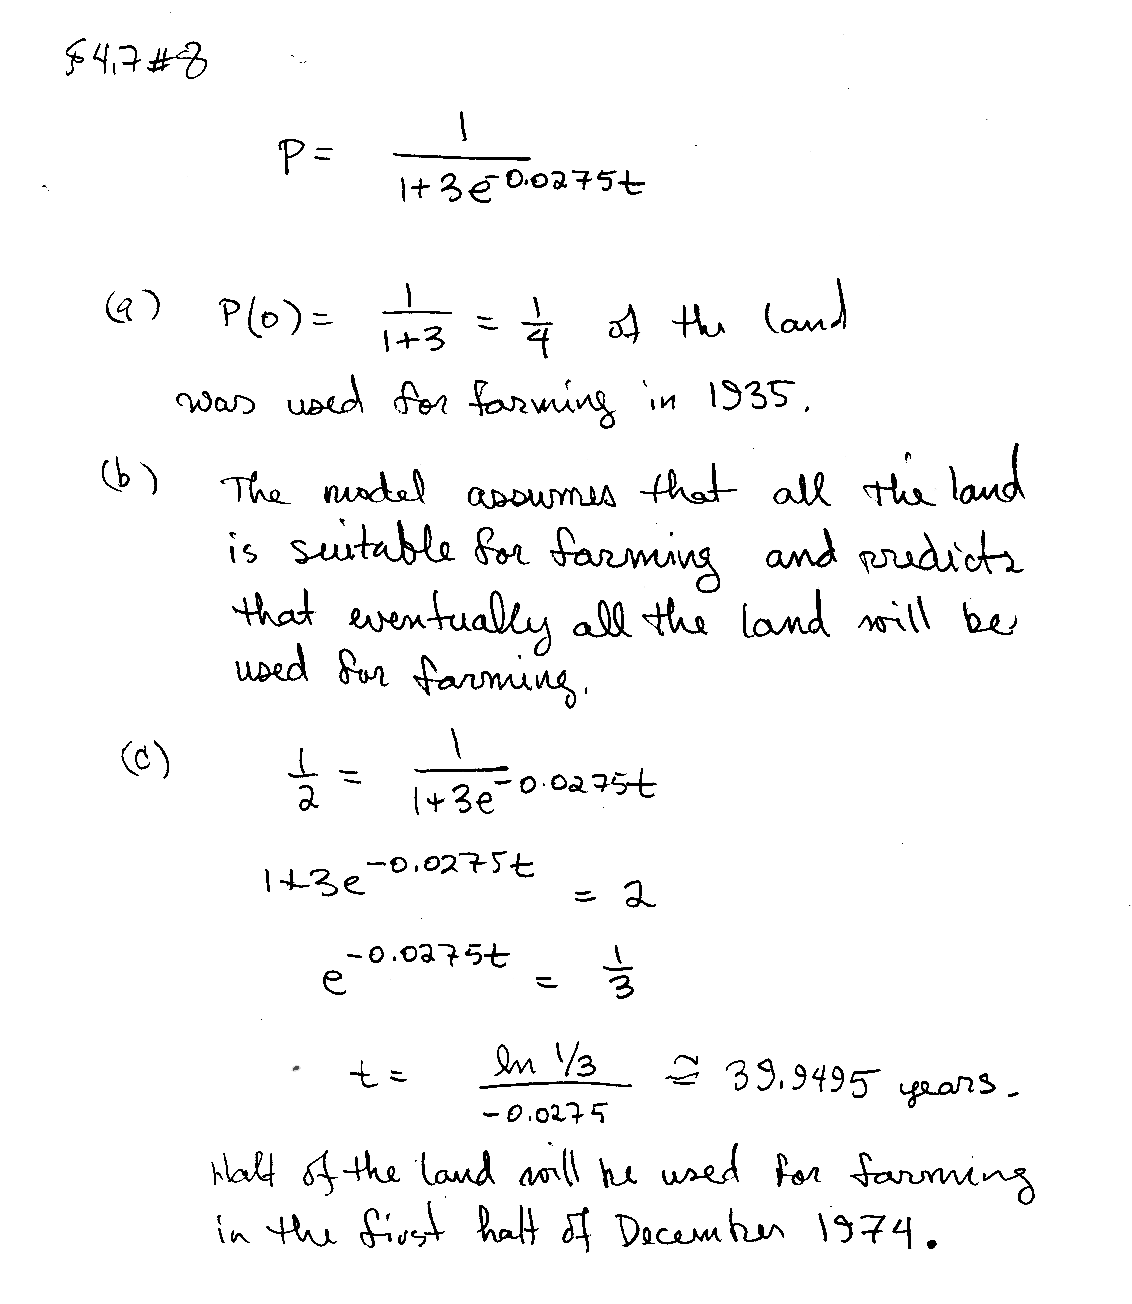 §4.7 #8
P = 1/(1+3e^-0.0275t)
(a) P(0) = 1/(1+3) = 1/4 of the land
was used for farming in 1935.
(b) The model assumes that all the land
is suitable for farming and predicts
that eventually all the land will be
used for farming.
(c) 1/2 = 1/(1+3e^-0.0275t)
1+3e^-0.0275t = 2
e^-0.0275t = 1/3
t = ln 1/3 / -0.0275 ≅ 39.9495 years.
Half of the land will be used for farming
in the first half of December 1974.